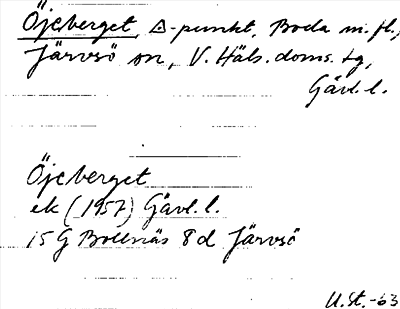 Öjeberget, △-punkt, Boda m.fl.,
Järvsö sn, V. Häls. doms. tg,
Gävl. l.
Öjeberget
ek (1957) Gävl. l.
15 G Bollnäs 8d Järvsö
U.St.-63